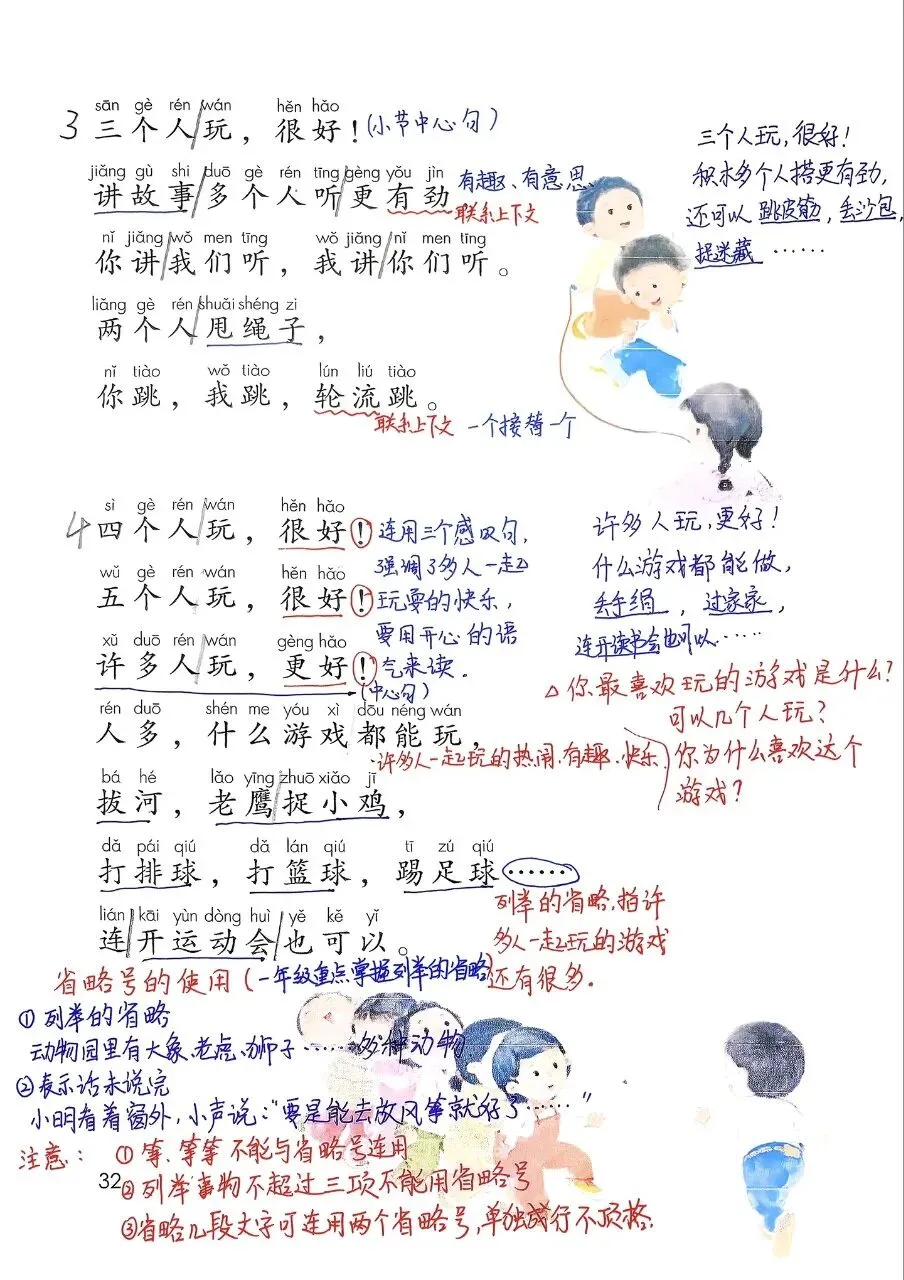 sān gè rén wán hěn hǎo
3 三个人/玩，很好！(小节中心句)
jiǎng gù shi duō gè rén tīng gèng yǒu jìn
讲故事/多个人听/更有劲
有趣、有意思、
联系上下文
nǐ jiǎng wǒ men tīng wǒ jiǎng nǐ men tīng
你讲/我们听，我讲/你们听。
liǎng gè rén shuǎi shéng zi
两个人/甩绳子，
nǐ tiào wǒ tiào lún liú tiào
你跳，我跳，轮流跳。
联系上下文 一个接替一个
三个人玩，很好！
积木多个人搭更有劲，
还可以跳皮筋，丢沙包，
捉迷藏……
sì gè rén wán hěn hǎo
4 四个人/玩，很好！
wǔ gè rén wán hěn hǎo
五个人/玩，很好！
xǔ duō rén wán gèng hǎo
许多人/玩，更好！
(中心句)
连用三个感叹句，
强调了多人一起
玩耍的快乐，
要用开心的语
气来读.
rén duō shén me yóu xì dōu néng wán
人多，什么游戏/都能玩，
·许多人一起玩的热闹、有趣、快乐
bá hé lǎo yīng zhuō xiǎo jī
拔河，老鹰/捉小鸡，
dǎ pái qiú dǎ lán qiú tī zú qiú
打排球，打篮球，踢足球……
lián kāi yùn dòng huì yě kě yǐ
连/开运动会/也可以。
列举的省略，指许
多人一起玩的游戏
还有很多.
许多人玩，更好！
什么游戏都能做，
丢手绢，过家家，
连开读书会也可以……
△你最喜欢玩的游戏是什么？
可以几个人玩？
你为什么喜欢这个
游戏？
省略号的使用(一年级重点掌握列举的省略)
①列举的省略
动物园里有大象、老虎、狮子……多种动物
②表示话未说完
小明看着窗外，小声说：“要是能去放风筝就好了……”
注意：①等、等等不能与省略号连用
②列举事物不超过三项不能用省略号
③省略几段文字可连用两个省略号，单独成行不顶格.
32